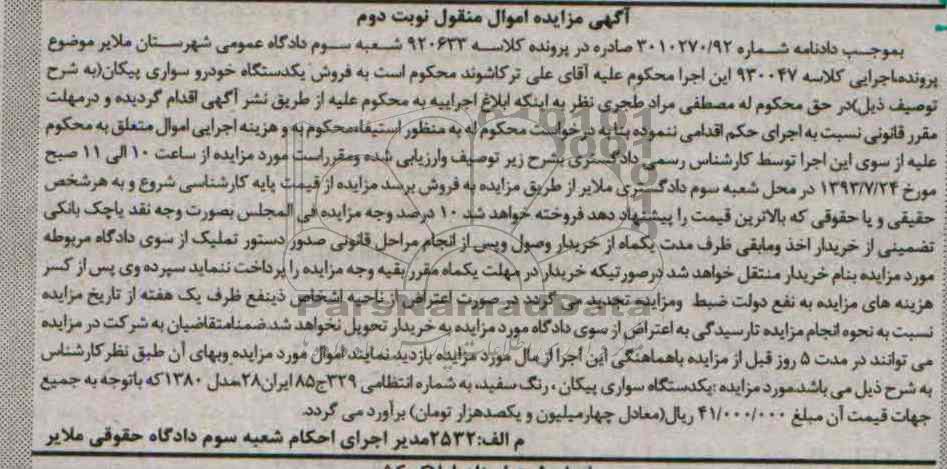 آگهی مزایده اموال منقول نوبت دوم
بموجب دادنامه شماره ۳۰۱۰۲۷۰/۹۲ صادره در پرونده کلاسه ۹۲۰۶۳۳ شعبه سوم دادگاه عمومی شهرستان ملایر موضوع
پرونده‌اجرایی کلاسه ۹۳۰۰۴۷ این اجرا محکوم علیه آقای علی ترکاشوند محکوم است به فروش یکدستگاه خودرو سواری پیکان(به شرح
توصیف ذیل)در حق محکوم له مصطفی مراد طجری نظر به اینکه ابلاغ اجراییه به محکوم علیه از طریق نشر آگهی اقدام گردیده و درمهلت
مقرر قانونی نسبت به اجرای حکم اقدامی ننموده بنا به درخواست محکوم له به منظور استیفاءمحکوم به و هزینه اجرایی اموال متعلق به محکوم
علیه از سوی این اجرا توسط کارشناس رسمی دادگستری بشرح زیر توصیف وارزیابی شده ومقرراست مورد مزایده از ساعت ۱۰ الی ۱۱ صبح
مورخ ۱۳۹۳/۷/۲۴ در محل شعبه سوم دادگستری ملایر از طریق مزایده به فروش برسد مزایده از قیمت پایه کارشناسی شروع و به هرشخص
حقیقی و یا حقوقی که بالاترین قیمت را پیشنهاد دهد فروخته خواهد شد ۱۰ درصد وجه مزایده فی المجلس بصورت وجه نقد یاچک بانکی
تضمینی از خریدار اخذ ومابقی ظرف مدت یکماه از خریدار وصول وپس از انجام مراحل قانونی صدور دستور تملیک از سوی دادگاه مربوطه
مورد مزایده بنام خریدار منتقل خواهد شد درصورتیکه خریدار در مهلت یکماه مقرر بقیه وجه مزایده را پرداخت ننماید سپرده وی پس از کسر
هزینه های مزایده به نفع دولت ضبط ومزایده تجدید می گردد در صورت اعتراض از ناحیه اشخاص ذینفع ظرف یک هفته از تاریخ مزایده
نسبت به نحوه انجام مزایده تا رسیدگی به اعتراض از سوی دادگاه مورد مزایده به خریدار تحویل نخواهد شد.ضمنامتقاضیان به شرکت در مزایده
می توانند در مدت ۵ روز قبل از مزایده باهماهنگی این اجرا از مال مورد مزایده بازدید نمایند اموال مورد مزایده وبهای آن طبق نظر کارشناس
به شرح ذیل می باشد.مورد مزایده :یکدستگاه سواری پیکان ، رنگ سفید، به شماره انتظامی ۳۲۹ج۸۵ایران۲۸مدل ۱۳۸۰که باتوجه به جمیع
جهات قیمت آن مبلغ ۴۱/۰۰۰/۰۰۰ ریال(معادل چهارمیلیون و یکصدهزار تومان) برآورد می گردد.
م الف:۲۵۳۲مدیر اجرای احکام شعبه سوم دادگاه حقوقی ملایر
ParsNamadData